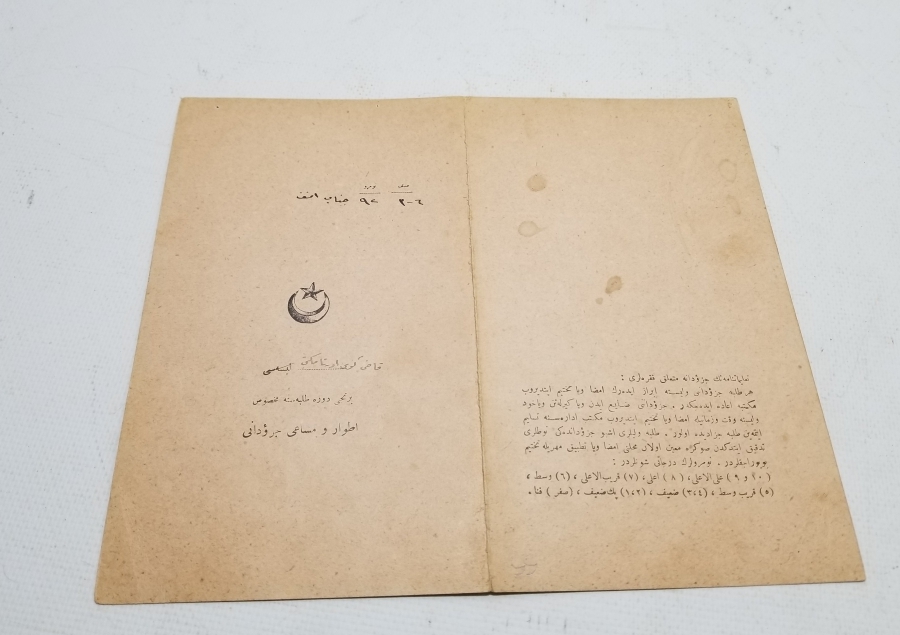 صنف نومرو
٦-٣ ٩٧ جناب
قاضی کوی اورتا مکتبی
برنجی دوره طلبه‌سنه مخصوص
اطوار و مساعی جزؤدانی
تعلیماتنامه‌نك جزؤدانه متعلق فقره‌لری :
هر طلبه جزؤدانی ولیسنه ابراز ایده‌رك امضا ویا تختیم ایتدیروب
مکتبه اعاده ایده‌جکدر . جزؤدانی ضایع ایدن ویا کیرلتن ویاخود
ولیسنه وقت وزمانیله امضا ویا تختیم ایتدیروب مکتب اداره‌سنه تسلیم
ایتمه‌ین طلبه جزادیده اولور . طلبه ولیلری اشو جزؤدانده‌کی نوطلری
تدقیق ایتدکدن صوکره معین اولان محلنی امضا ویا تطبیق مهریله تختیم
بویورا‌جقلردر . نومرولرك درجاتی شونلردر :
( ١٠ و ٩ ) علی الاعلی ، ( ٨ ) اعلی ، (٧) قریب الاعلی ، (٦) وسط ،
(٥) قریب وسط ، (٣،٤) ضعیف ، (١،٢) پك ضعیف ، ( صفر ) فنا .